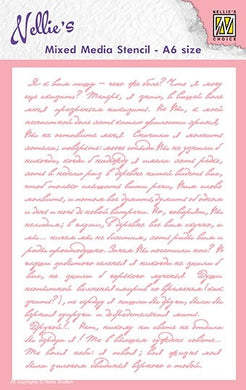 Nellie's
NELLIE'S CHOICE
Mixed Media Stencil - A6 size
Я к вам пишу – чего же боле? Что я могу
еще сказать? Теперь, я знаю, в вашей воле
меня презреньем наказать. Но Вы, к моей
несчастной доле хоть каплю жалости храня,
Вы не оставите меня. Сначала я молчать
хотела; поверьте: моего стыда Вы не узнали б
никогда, когда б надежду я имела хоть редко,
хоть в неделю раз в деревне нашей видеть вас,
чтоб только слышать ваши речи, Вам слово
молвить, и потом все думать, думать об одном
и день и ночь до новой встречи. Но, говорят, Вы
нелюдим; в глуши, в деревне все вам скучно, а
мы... ничем мы не блестим, хоть вам и
рады простодушно. Зачем Вы посетили нас? В
глуши забытого селенья я никогда не знала б
вас, не знала б горького мученья. Души
неопытной волненья смирив со временем (как
знать?), по сердцу я нашла бы друга, была бы
верная супруга и добродетельная мать.
Другой!.. Нет, никому на свете не отдала
бы сердца я! То в вышнем суждено совете...
То воля неба: я твоя; вся жизнь моя
была залогом свиданья верного с тобой.
All copyrights © Nellie Snellen